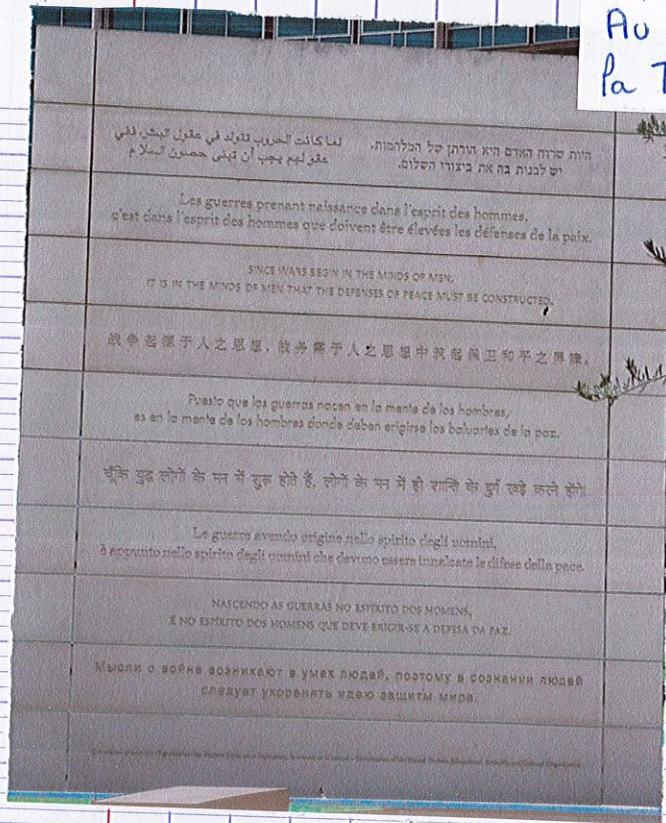 Au
لما كانت الحروب تتولد في عقول البشر، ففي
عقولهم يجب أن تبنى حصون السلام.
היות שרוח האדם היא הורתן של המלחמות,
יש לבנות בה את ביצורי השלום.
Les guerres prenant naissance dans l'esprit des hommes,
c'est dans l'esprit des hommes que doivent être élevées les défenses de la paix.
SINCE WARS BEGIN IN THE MINDS OF MEN,
IT IS IN THE MINDS OF MEN THAT THE DEFENSES OF PEACE MUST BE CONSTRUCTED.
战争起源于人之思想，故务需于人之思想中筑起保卫和平之屏障。
Puesto que las guerras nacen en la mente de los hombres,
es en la mente de los hombres donde deben erigirse los baluartes de la paz.
चूँकि युद्ध लोगों के मन में शुरू होते हैं, लोगों के मन में ही शान्ति के दुर्ग खड़े करने होंगे।
Le guerre avendo origine nello spirito degli uomini,
è appunto nello spirito degli uomini che devono essere innalzate le difese della pace.
NASCENDO AS GUERRAS NO ESPÍRITO DOS HOMENS,
É NO ESPÍRITO DOS HOMENS QUE DEVE ERIGIR-SE A DEFESA DA PAZ.
Мысли о войне возникают в умах людей, поэтому в сознании людей
следует укоренять идею защиты мира.